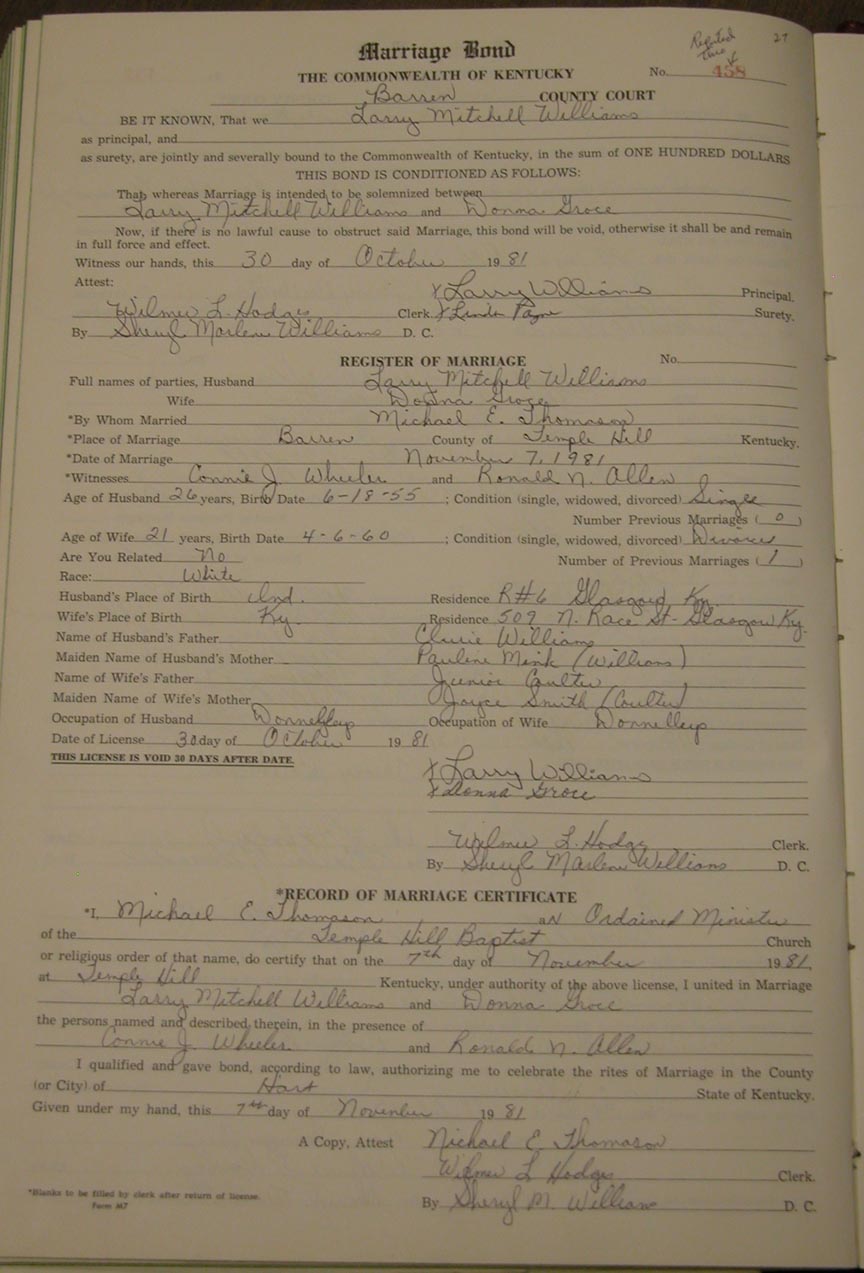 27
Marriage Bond
THE COMMONWEALTH OF KENTUCKY No. 458
Barren COUNTY COURT
BE IT KNOWN, That we Larry Mitchell Williams
as principal, and
as surety, are jointly and severally bound to the Commonwealth of Kentucky, in the sum of ONE HUNDRED DOLLARS
THIS BOND IS CONDITIONED AS FOLLOWS:
That whereas Marriage is intended to be solemnized between
Larry Mitchell Williams and Donna Groce
Now, if there is no lawful cause to obstruct said Marriage, this bond will be void, otherwise it shall be and remain
in full force and effect.
Witness our hands, this 30 day of October 1981
Attest: x Larry Williams Principal.
Wilmer L. Hodges Clerk x Linda Payne Surety.
By Sheryl Marlene Williams D. C.
REGISTER OF MARRIAGE No.
Full names of parties, Husband Larry Mitchell Williams
Wife Donna Groce
*By Whom Married Michael E. Thomason
*Place of Marriage Barren County of Temple Hill Kentucky.
*Date of Marriage November 7, 1981
*Witnesses Connie J. Wheeler and Ronald N. Allen
Age of Husband 26 years, Birth Date 6-18-55; Condition (single, widowed, divorced) Single
Number Previous Marriages (0)
Age of Wife 21 years, Birth Date 4-6-60; Condition (single, widowed, divorced) Divorced
Are You Related No Number of Previous Marriages (1)
Race: White
Husband's Place of Birth Ind. Residence R#6 Glasgow Ky.
Wife's Place of Birth Ky. Residence 509 N. Race St- Glasgow Ky.
Name of Husband's Father Williams
Maiden Name of Husband's Mother Pauline Mink (Williams)
Name of Wife's Father Junior Coulter
Maiden Name of Wife's Mother Joyce Smith (Coulter)
Occupation of Husband Donnelleys Occupation of Wife Donnelleys
Date of License 30 day of October 1981
THIS LICENSE IS VOID 30 DAYS AFTER DATE.
x Larry Williams
x Donna Groce
Wilmer L. Hodges Clerk.
By Sheryl Marlene Williams D. C.
*RECORD OF MARRIAGE CERTIFICATE
*I, Michael E. Thomason, aN Ordained Minister
of the Temple Hill Baptist Church
or religious order of that name, do certify that on the 7th day of November 1981,
at Temple Hill Kentucky, under authority of the above license, I united in Marriage
Larry Mitchell Williams and Donna Groce
the persons named and described therein, in the presence of
Connie J. Wheeler and Ronald N. Allen
I qualified and gave bond, according to law, authorizing me to celebrate the rites of Marriage in the County
(or City) of Hart State of Kentucky.
Given under my hand, this 7th day of November 1981
A Copy, Attest Michael E. Thomason
Wilmer L Hodges Clerk.
*Blanks to be filled by clerk after return of license.
Form M7
By Sheryl M. Williams D. C.